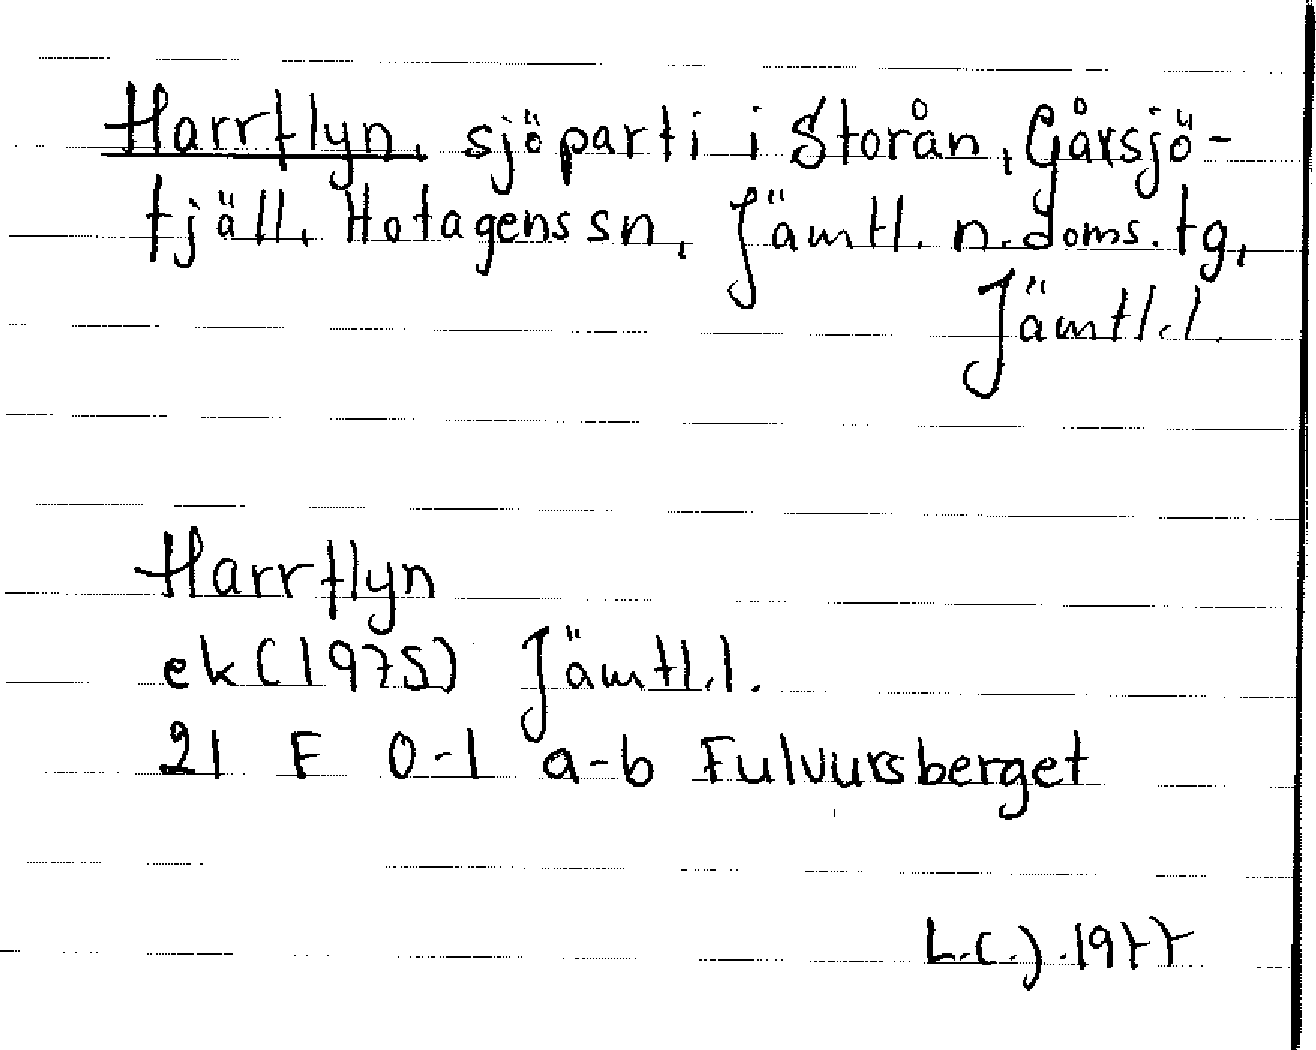 Harrflyn, sjöparti i Storån, Gårsjö-
fjäll, Hotagens sn, Jämtl. n. doms. tg,
Jämtl.l.
Harrflyn
ek (1975) Jämtl.l.
21 F 0-1 a-b Fulvursberget
L.C.J. 1977